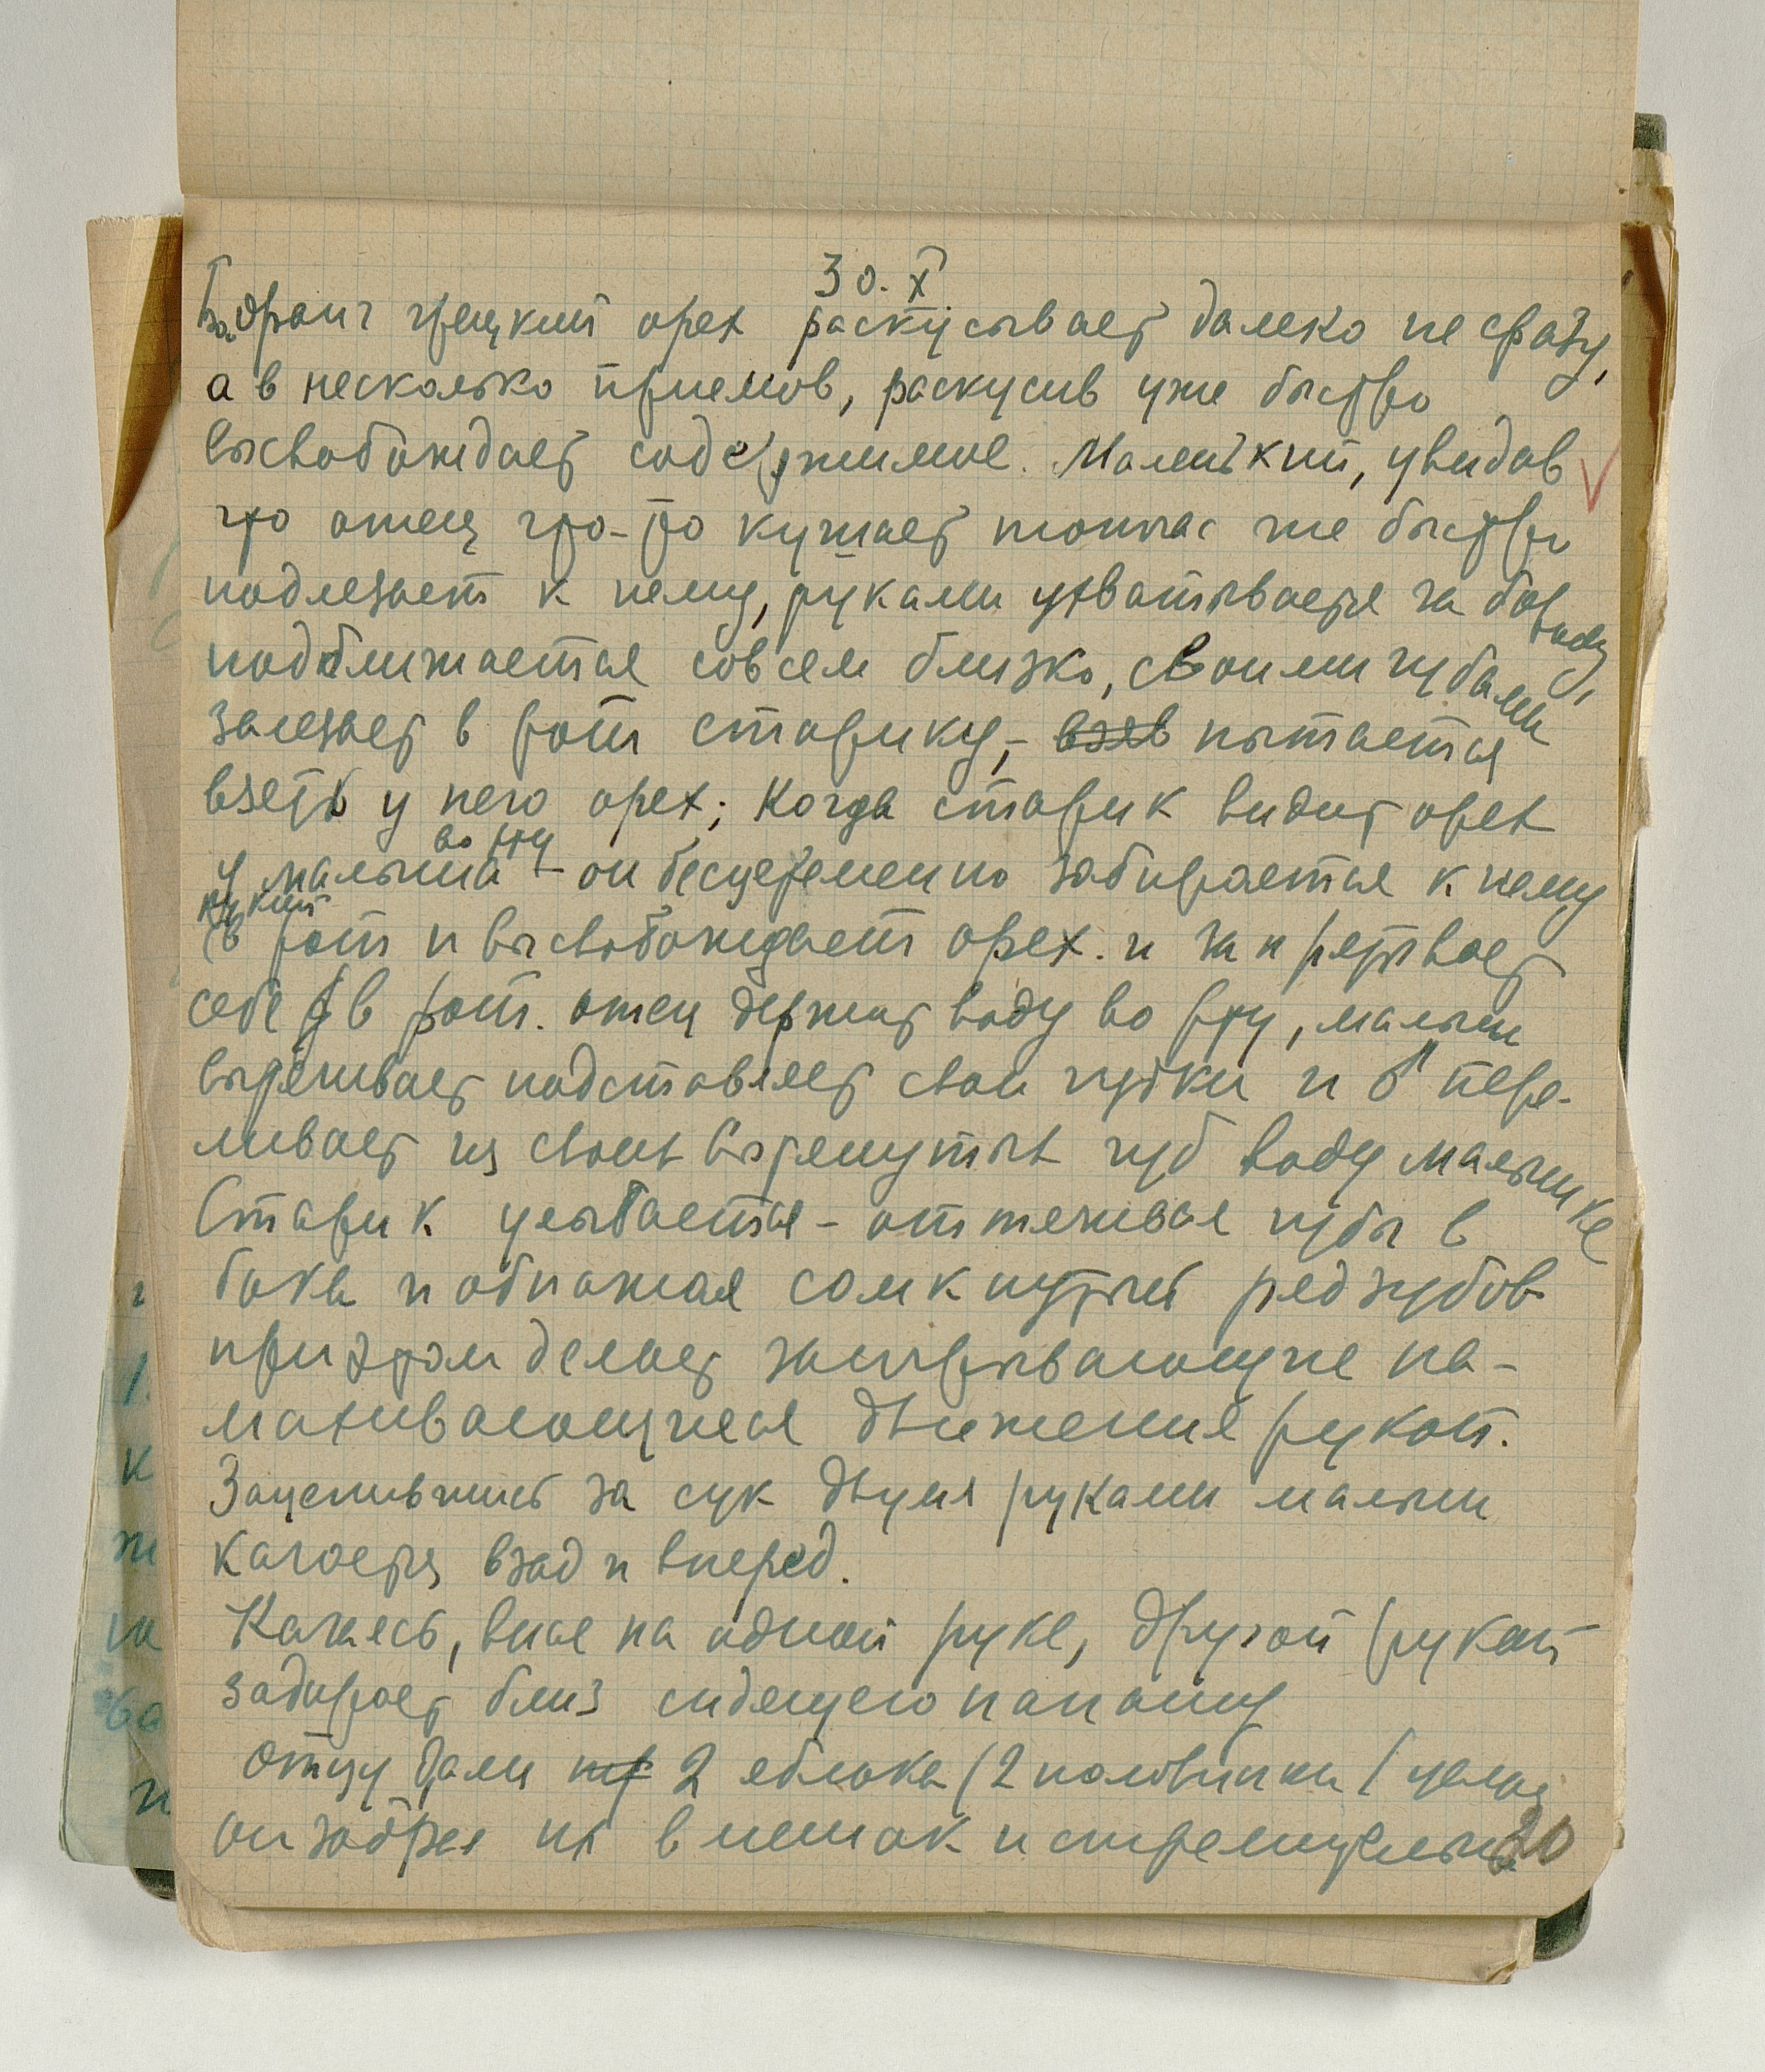 30.X
грецкий орех раскусывает далеко не сразу,
а в несколько приемов, раскусив уже быстро
высвобождает содержимое. Маленький, увидав
что отец что-то кушает тотчас же быстро
подлезает к нему, руками ухватывается за бороду,
подближается совсем близко, своими губами
залезает в рот старику, - взяв пытается
взять у него орех; Когда старик видит орех
во рту
у малыша - он бесцеремонно забирается к нему
рукой
в рот и высвобождает орех. и запрятывает
себе в рот. отец держит воду во рту, малыш
вытягивает подставляет свои губки и пере-
ливает из своих вытянутых губ воду малышке
Старик улыбается - оттягивая губы в
бока и обнажая сомкнутый ряд зубов
при этом делает заигрывающие на-
махивающиеся движения рукой.
Зацепившись за сук двумя руками малыш
качается взад и вперед.
Качаясь, вися на одной руке, другой рукой
задирает близ сидящего папашу
Отцу дали 2 яблока (2 половинки 1 целое
он забрал их в мешок и стремительно
20